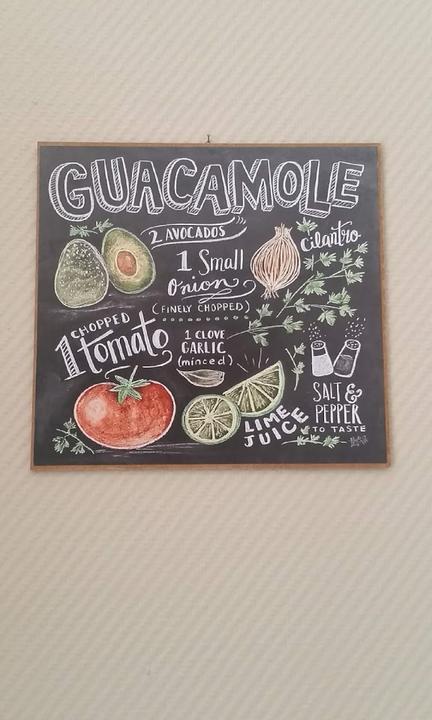 GUACAMOLE
2 AVOCADOS
1 Small
Onion
(FINELY CHOPPED)
cilantro
CHOPPED
1 tomato
1 CLOVE
GARLIC
(minced)
LIME
JUICE
SALT &
PEPPER
TO TASTE